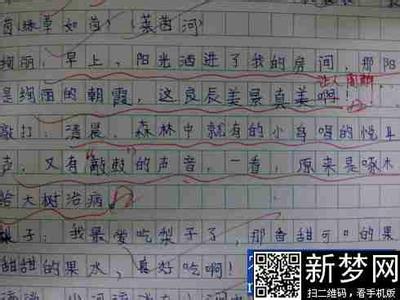 茵绿草如茵）（莱茵河）
绚丽：早上，阳光洒进了我的房间，那阳
让人陶醉
是绚丽的朝霞，这良辰美景真美啊！
敲打：清晨，森林中就有的小鸟唱的悦耳
声，又有“敲敲”的声音，一看，原来是啄木
给大树治病。
梨子：我最爱吃梨子了，那香甜可口的果
甜甜的果水，真好吃啊！
新梦网
扫二维码，看手机版